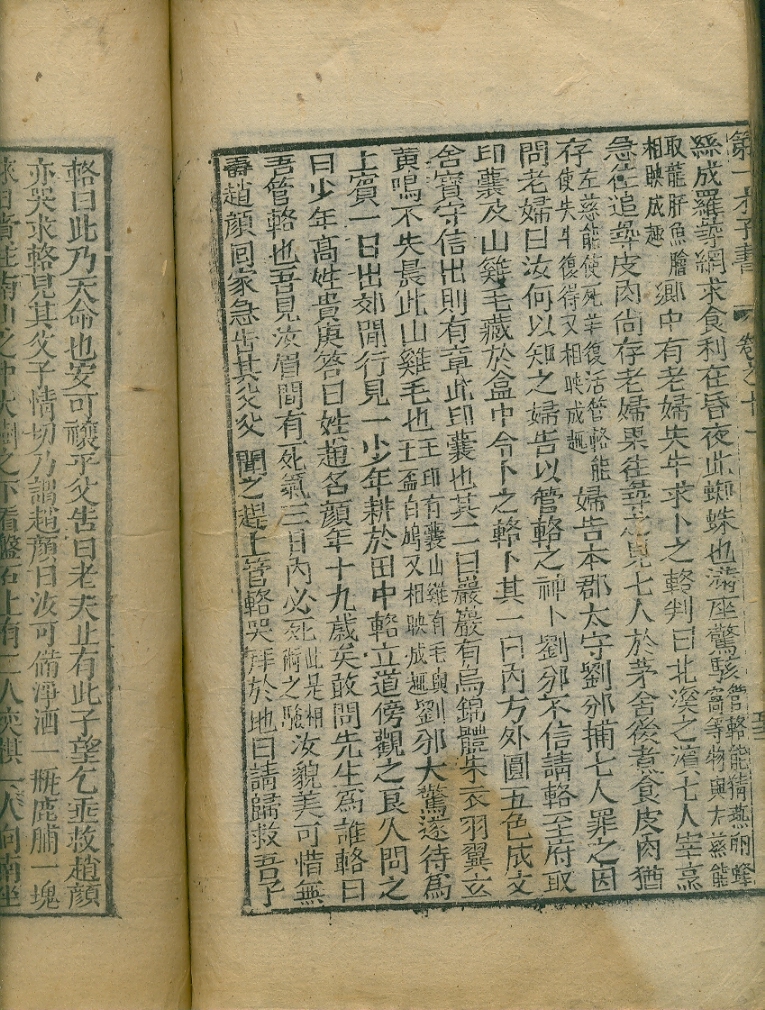 第一才子書 卷之十一
絲成羅尋網求食利在昏夜此蜘蛛也滿座驚駭管輅能猜燕卵蜂窩等物與左慈能
取龍肝魚膽相映成趣鄉中有老婦失牛求卜之輅判曰北溪之濱七人宰烹
急往追尋皮肉尚存老婦果往尋之見七人於茅舍後煮食皮肉猶
存左慈能使死羊復活管輅能使失牛復得又相映成趣婦告本郡太守劉邠捕七人罪之因
問老婦曰汝何以知之婦告以管輅之神卜劉邠不信請輅至府取
印囊及山雞毛藏於盒中令卜之輅卜其一曰內方外圓五色成文
含寶守信出則有章此印囊也其二曰巖巖有鳥錦體朱衣羽翼玄
黃鳴不失晨此山雞毛也王印有囊山雞有毛與玉盃白鳩又相映成趣劉邠大驚遂待為
上賓一日出郊閒行見一少年耕於田中輅立道傍觀之良久問之
曰少年高姓貴庚答曰姓趙名顏年十九歲矣敢問先生為誰輅曰
吾管輅也吾見汝眉間有死氣三日內必死此是相術之驗汝貌美可惜無
壽趙顏回家急告其父父聞之趕上管輅哭拜於地曰請歸救吾子
輅曰此乃天命也安可禳乎父告曰老夫止有此子望乞垂救趙顏
亦哭求輅見其父子情切乃謂趙顏曰汝可備淨酒一瓶鹿脯一塊
來日賫往南山之中大樹之下看盤石上有二人奕棋一人向南坐